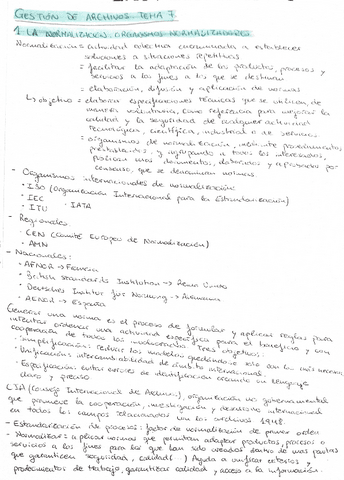 GESTIÓN DE ARCHIVOS. TEMA 7.
1. LA NORMALIZACIÓN. ORGANISMOS NORMALIZADORES
Normalización = actividad colectiva encaminada a establecer
soluciones a situaciones repetitivas
= facilitar la adaptación de los productos, procesos y
servicios a los fines a los que se destinan
= elaboración, difusión y aplicación de normas
↳ objetivo = elaborar especificaciones técnicas que se utilizan de
manera voluntaria como referencia para mejorar la
calidad y la seguridad de cualquier actividad
tecnológica, científica, industrial o de servicios
= organismos de normalización, mediante procedimientos
y agrupando a todos los interesados,
unos documentos, elaborados y aprobados por
consenso, que se denominan normas.
- Organismos internacionales de normalización:
· ISO (Organización Internacional para la Estandarización)
· IEC · IATA
· ITU
- Regionales
· CEN (Comité Europeo de Normalización)
· AMN
- Nacionales:
· AFNOR → Francia
· British Standards Institution → Reino Unido
· Deutsches Institut für Normung → Alemania
· AENOR → España
Generar una norma es el proceso de formular y aplicar reglas para
intentar ordenar una actividad específica para el beneficio y con
cooperación de todos los involucrados. Tres objetivos:
· Simplificación: reducir los modelos quedándose solo con los más necesarios
· Unificación: intercambiabilidad de ámbito internacional
· Especificación: evitar errores de identificación creando un lenguaje
claro y preciso
CIA (Consejo Internacional de Archivos), organización no gubernamental
que promueve la cooperación, investigación y desarrollo internacional
en todos los campos relacionados con los archivos 1948.
- Estandarización de procesos: factor de normalización de primer orden
- Normalizar: aplicar normas que permitan adaptar productos, procesos o
servicios a los fines para los que han sido creados dentro de unas pautas
que garanticen seguridad, calidad. Ayuda a unificar criterios y
procedimientos de trabajo, garantizar calidad y acceso a la información.